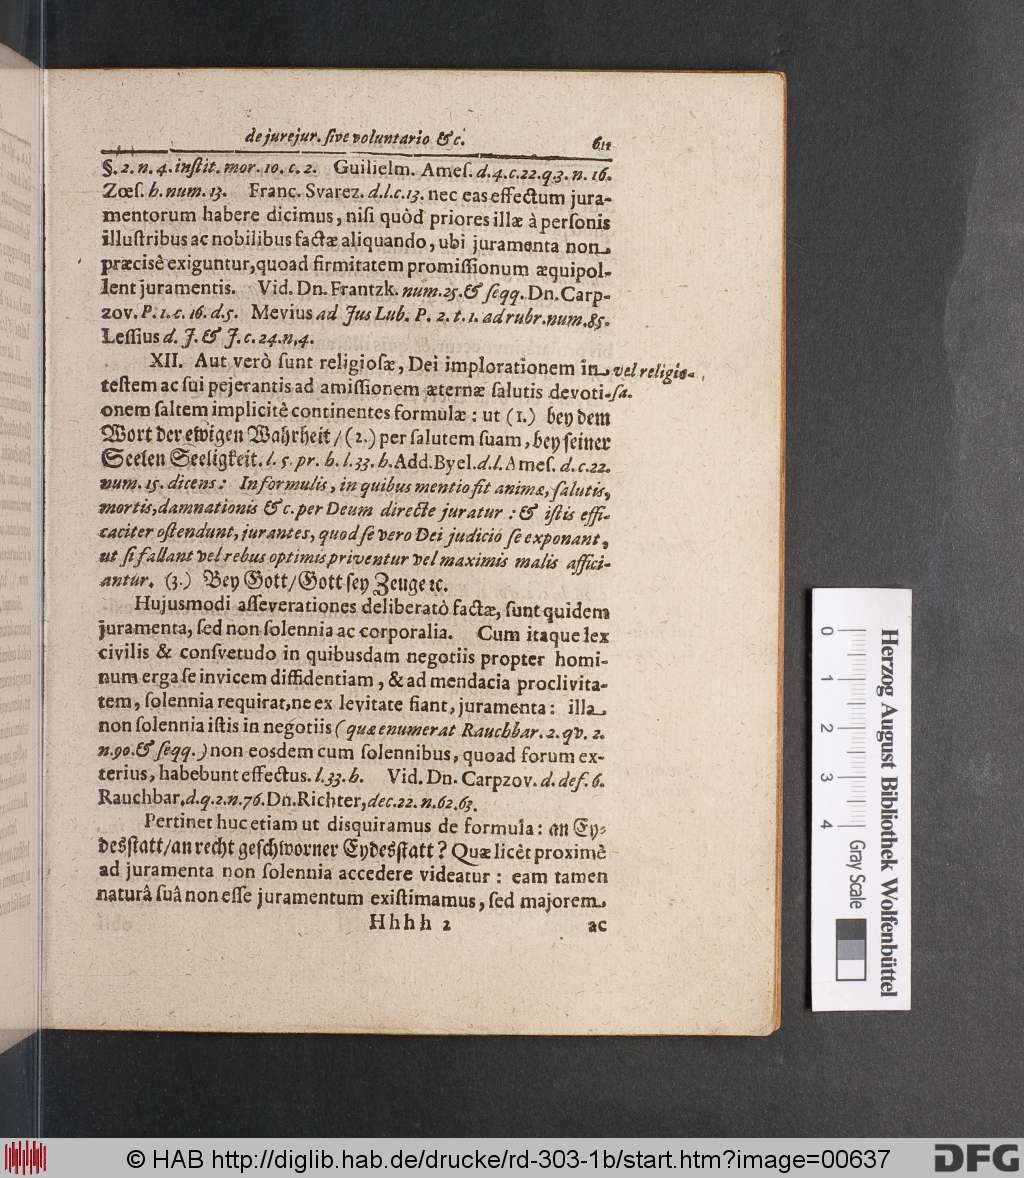 de jurejur. ſive voluntario &c. 611
§. 2. n. 4. inſtit. mor. 10. c. 2. Guilielm. Ameſ. d. 4. c. 22. q. 3. n. 16.
Zœſ. h. num. 13. Franc. Svarez. d. l. c. 13. nec eas effectum jura-
mentorum habere dicimus, niſi quòd priores illæ à perſonis
illuſtribus ac nobilibus factæ aliquando, ubi juramenta non
præcisè exiguntur, quoad firmitatem promiſſionum æquipol-
lent juramentis. Vid. Dn. Frantzk. num. 25. & ſeqq. Dn. Carp-
zov. P. 1. c. 16. d. 5. Mevius ad Jus Lub. P. 2. t. 1. ad rubr. num. 85.
Leſſius d. J. & J. c. 24. n. 4.
XII. Aut verò ſunt religioſæ, Dei implorationem in vel religio-
teſtem ac ſui pejerantis ad amiſſionem æternæ ſalutis devoti- ſa.
onem ſaltem implicitè continentes formulæ: ut (1.) bey dem
Wort der ewigen Wahrheit / (2.) per ſalutem ſuam, bey ſeiner
Seelen Seeligkeit. l. 5. pr. h. l. 33. h. Add. Byel. d. l. Ameſ. d. c. 22.
num. 15. dicens: In formulis, in quibus mentio fit animæ, ſalutis,
mortis, damnationis &c. per Deum directe juratur: & iſtis effi-
caciter oſtendunt, jurantes, quod ſe vero Dei judicio ſe exponant,
ut ſi fallant vel rebus optimis priventur vel maximis malis affici-
antur. (3.) Bey Gott / Gott ſey Zeuge ꝛc.
Hujusmodi aſſeverationes deliberatò factæ, ſunt quidem
juramenta, ſed non ſolennia ac corporalia. Cum itaque lex
civilis & conſvetudo in quibusdam negotiis propter homi-
num erga ſe invicem diffidentiam, & ad mendacia proclivita-
tem, ſolennia requirat, ne ex levitate fiant, juramenta: illa
non ſolennia iſtis in negotiis (quæ enumerat Rauchbar. 2. qv. 2.
n. 90. & ſeqq.) non eosdem cum ſolennibus, quoad forum ex-
terius, habebunt effectus. l. 33. h. Vid. Dn. Carpzov. d. def. 6.
Rauchbar. d. q. 2. n. 76. Dn. Richter, dec. 22. n. 62. 63.
Pertinet huc etiam ut disquiramus de formula: an Ey-
desſtatt / an recht geſchworner Eydesſtatt? Quæ licèt proximè
ad juramenta non ſolennia accedere videatur: eam tamen
naturâ ſuâ non eſſe juramentum exiſtimamus, ſed majorem
Hhhh 2 ac
0 1 2 3 4 Gray Scale
Herzog August Bibliothek Wolfenbüttel
© HAB http://diglib.hab.de/drucke/rd-303-1b/start.htm?image=00637
DFG